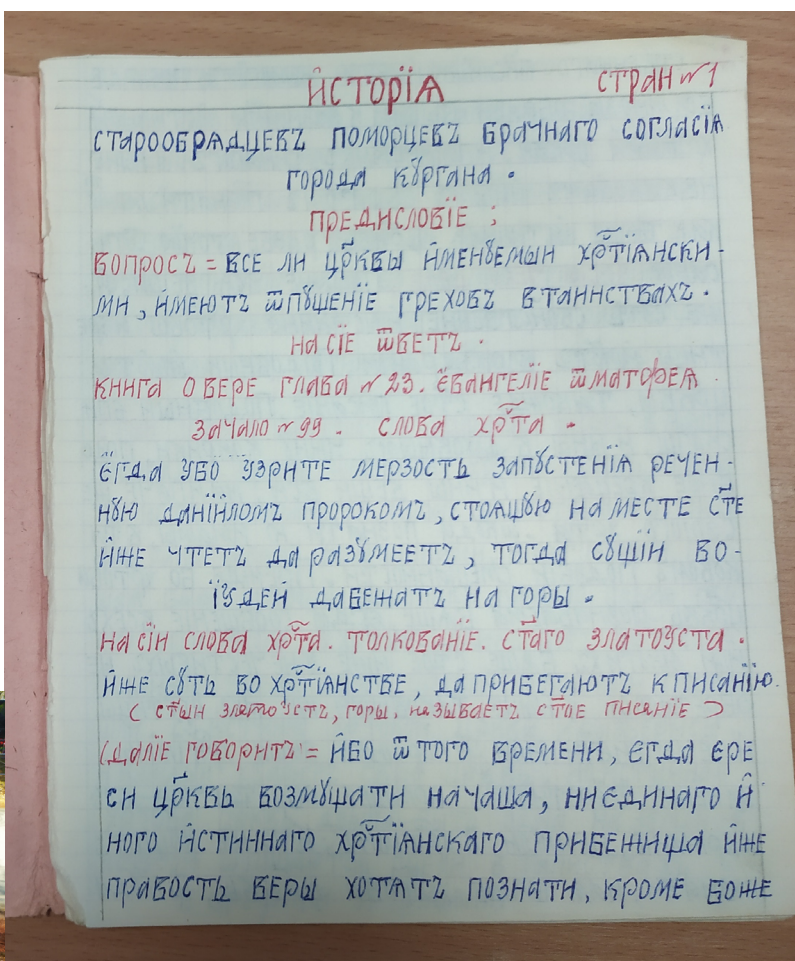 И҆СТОРЇѦ СТРАН № 1
СТАРООБРѦДЦЕВЪ ПОМОРЦЕВЪ БРАЧНАГО СОГЛАСЇѦ
ГОРОДА КꙊРГАНА .
ПРЕДИСЛОВЇЕ ;
ВОПРОСЪ = ВСЕ ЛИ ЦР҃КВЫ И҆МЕНꙊЕМЫИ ХРⷭ҇ТЇѦНСКИ -
МИ , И҆МЕЮТЪ ѾПꙊЩЕНЇЕ ГРЕХОВЪ ВТАИНСТВАХЪ .
НА СЇЕ ѾВЕТЪ .
КНИГА О ВЕРЕ ГЛАВА № 23 . Е҆ВАНГЕЛЇЕ ѾМАТѲЕѦ .
ЗАЧАЛО № 99 . СЛОВА ХРⷭ҇ТА .
Е҆ГДА УБО УЗРИТЕ МЕРЗОСТЬ ЗАПꙊСТЕНЇѦ РЕЧЕН -
НꙊЮ ДАНЇИ҆ЛОМЪ ПРОРОКОМЪ , СТОѦЩꙊЮ НА МЕСТЕ СТ҃Е
И҆ЖЕ ЧТЕТЪ ДА РАЗꙊМЕЕТЪ , ТОГДА СꙊЩІИ ВО -
ЇУДЕЙ ДАБЕЖАТЪ НА ГОРЫ .
НА СІИ СЛОВА ХРⷭ҇ТА . ТОЛКОВАНЇЕ . СТ҃АГО ЗЛАТОУСТА .
И҆ЖЕ СꙊТЬ ВО ХРⷭ҇ТЇѦНСТВЕ , ДА ПРИБЕГАЮТЪ К ПИСАНЇЮ .
( СТ҃ЫИ ЗЛАТОУСТЪ , ГОРЫ , НАЗЫВАЕТЪ СТ҃ОЕ ПИСАНІЕ )
( ДАЛІЕ ГОВОРИТЪ = И҆БО Ѿ ТОГО ВРЕМЕНИ , ЕГДА ЕРЕ
СИ ЦР҃КВЬ ВОЗМꙊЩАТИ НАЧАША , НИ ЕДИНАГО И҆
НОГО И҆СТИННАГО ХРⷭ҇ТЇѦНСКАГО ПРИБЕЖИЩА И҆ЖЕ
ПРАВОСТЬ ВЕРЫ ХОТѦТЪ ПОЗНАТИ , КРОМЕ БОЖЕ